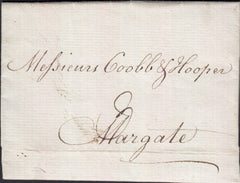 Messieurs Coobb & Hooper
Margate